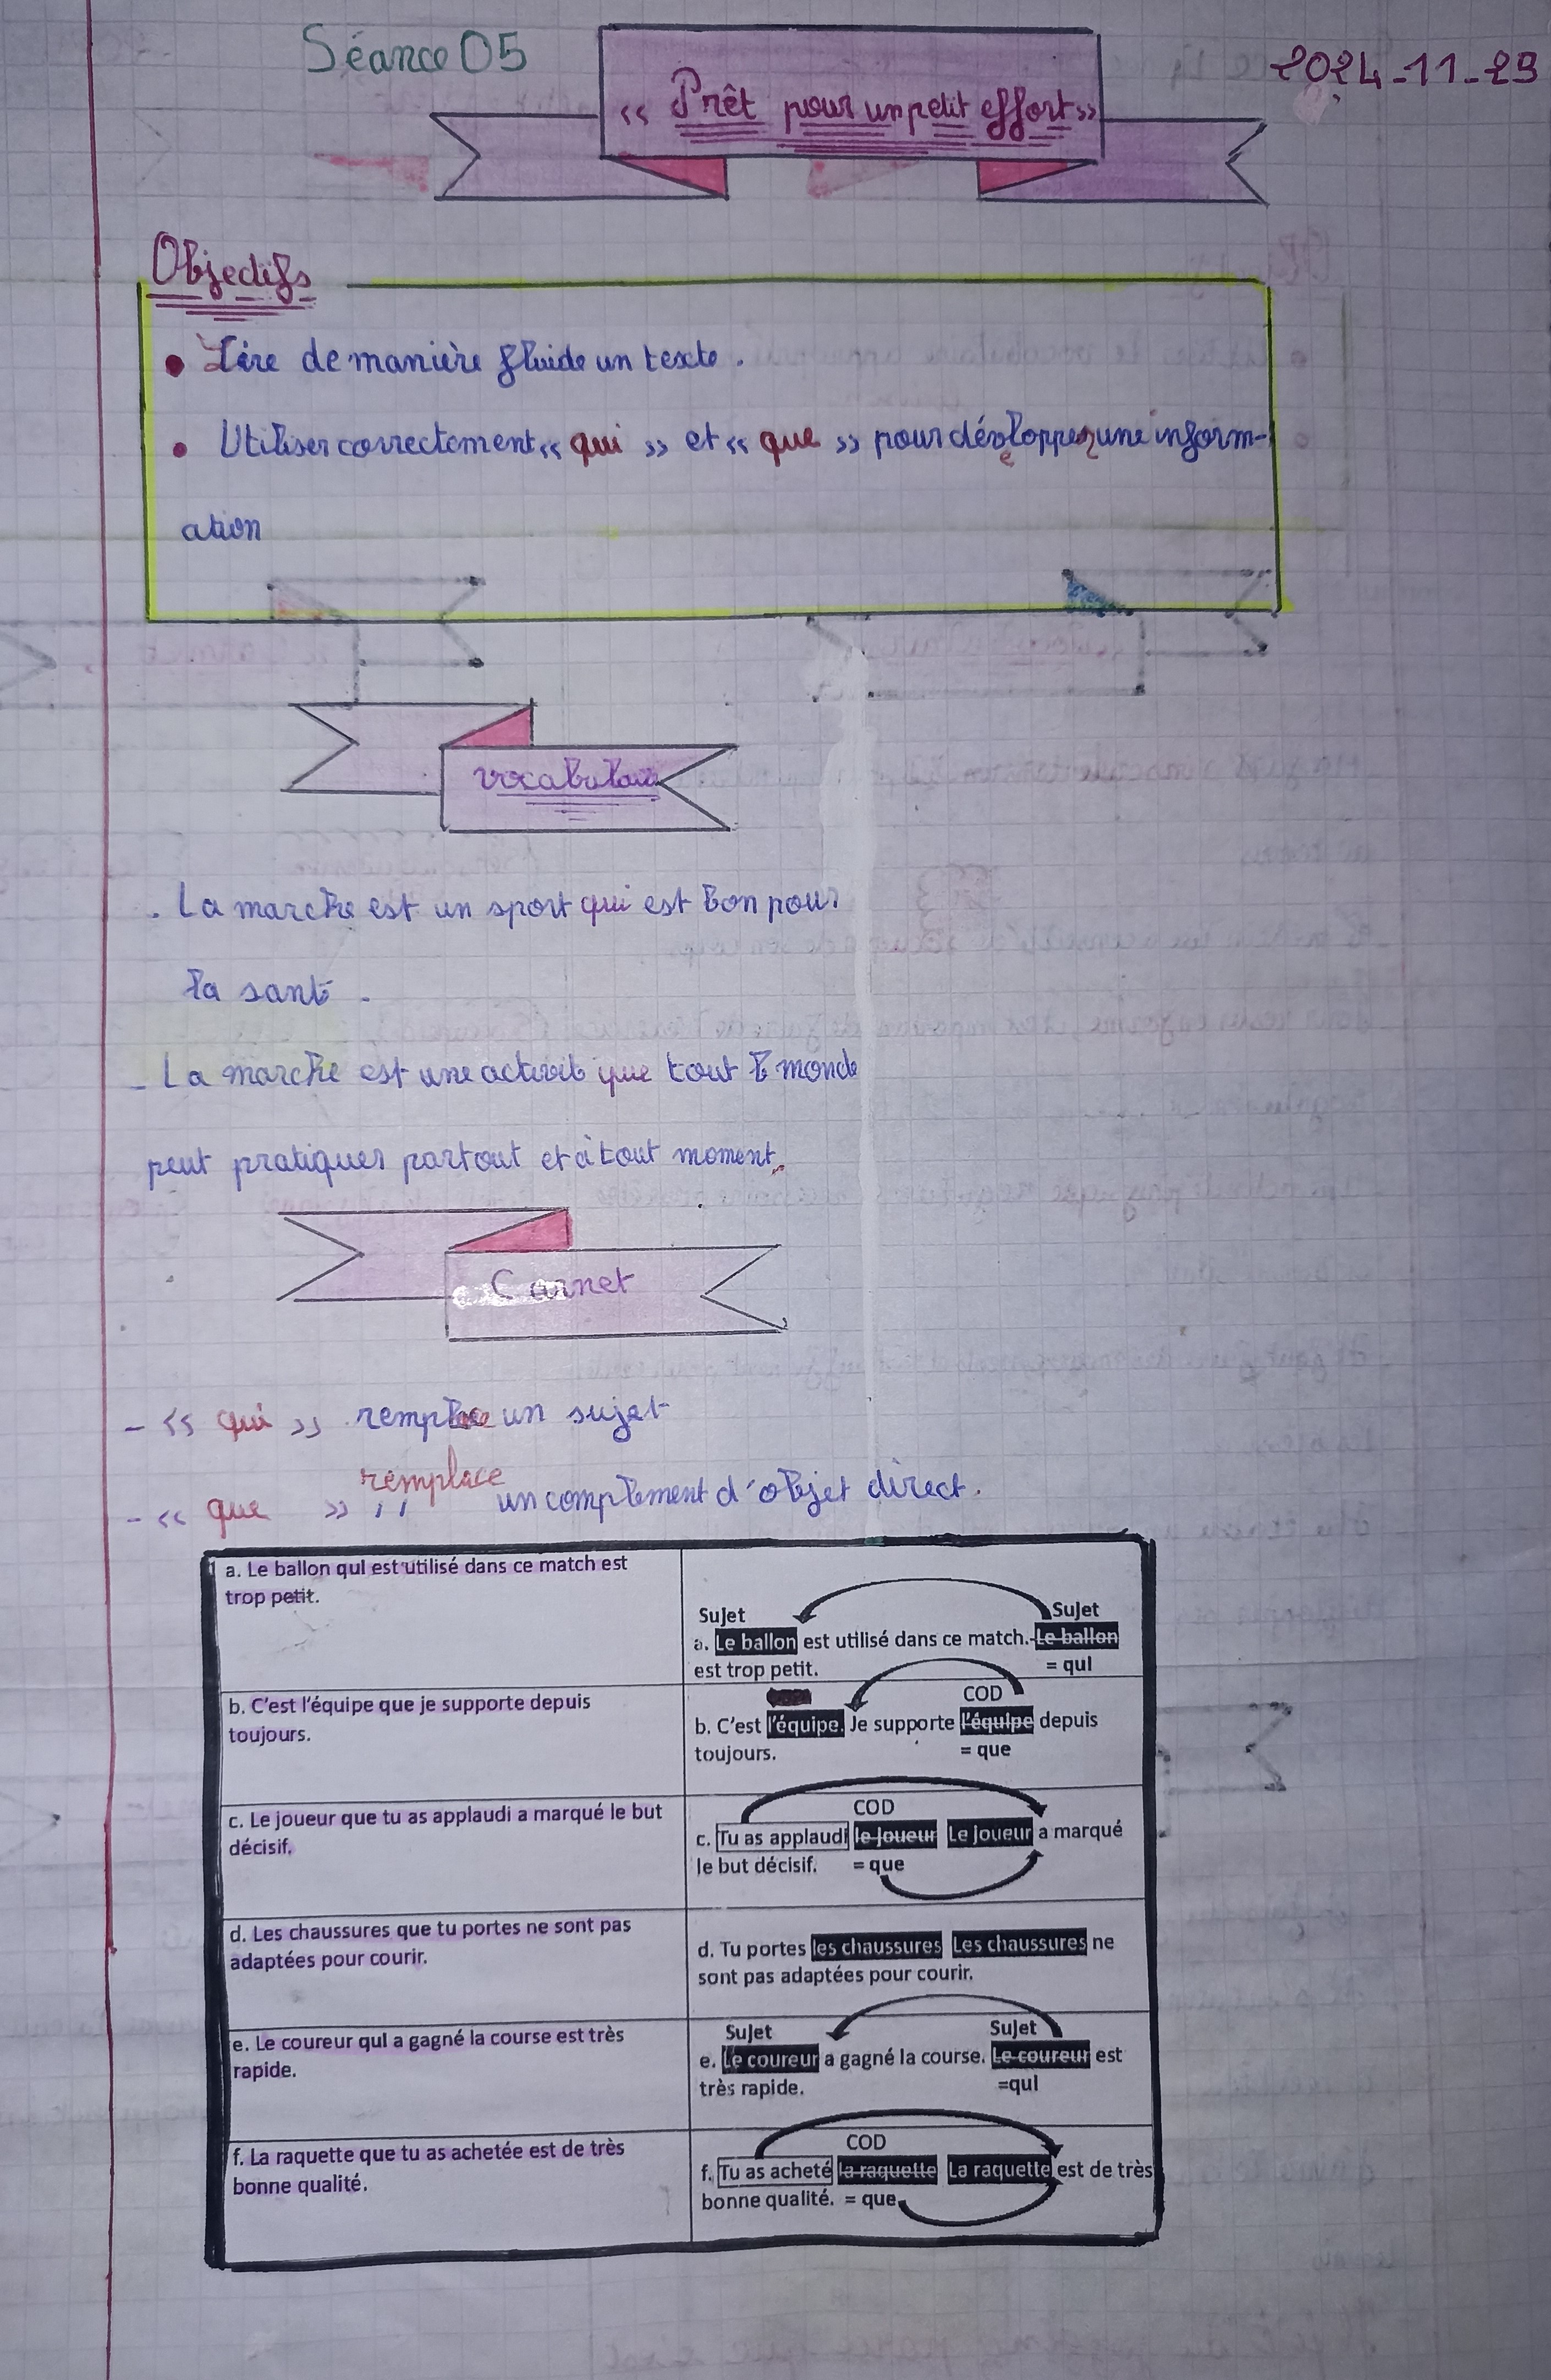 Séance 05
2024-11-29
« Prêt pour un petit effort »
Objectifs
• Lire de manière fluide un texte.
• Utiliser correctement « qui » et « que » pour développer une inform-
ation
vocabulaire
. La marche est un sport qui est bon pour
la santé -
- La marche est une activité que tout le monde
peut pratiquer partout et à tout moment.
Carnet
- « qui » remplace un sujet
remplace
- « que » ,, un complément d'objet direct.
a. Le ballon qui est utilisé dans ce match est
trop petit.
Sujet Sujet
a. Le ballon est utilisé dans ce match. Le ballon
est trop petit. = qui
b. C'est l'équipe que je supporte depuis
toujours.
COD
b. C'est l'équipe. Je supporte l'équipe depuis
toujours. = que
c. Le joueur que tu as applaudi a marqué le but
décisif.
COD
c. Tu as applaudi le joueur Le joueur a marqué
le but décisif. = que
d. Les chaussures que tu portes ne sont pas
adaptées pour courir.
d. Tu portes les chaussures Les chaussures ne
sont pas adaptées pour courir.
e. Le coureur qui a gagné la course est très
rapide.
Sujet Sujet
e. Le coureur a gagné la course. Le coureur est
très rapide. =qui
f. La raquette que tu as achetée est de très
bonne qualité.
COD
f. Tu as acheté la raquette La raquette est de très
bonne qualité. = que